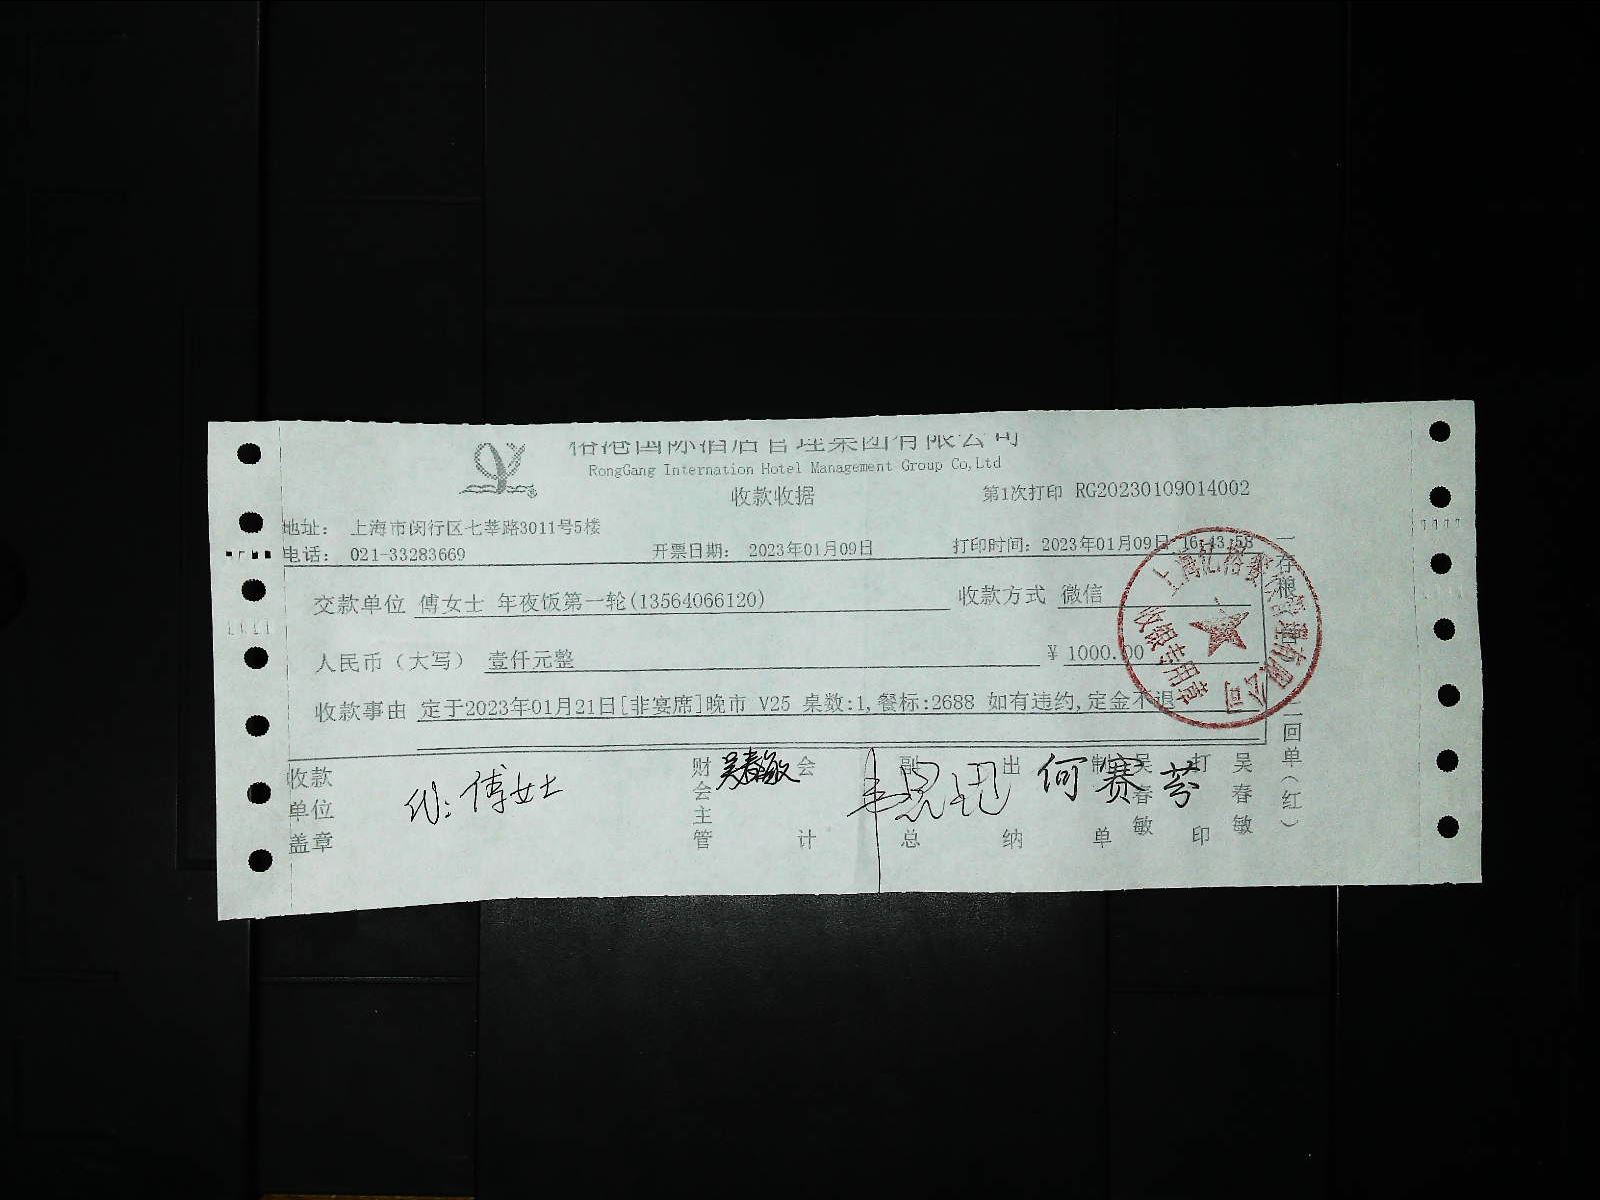 榕港国际酒店管理集团有限公司
RongGang Internation Hotel Management Group Co,Ltd
收款收据
第1次打印 RG20230109014002
地址： 上海市闵行区七莘路3011号5楼
电话： 021-33283669 开票日期： 2023年01月09日 打印时间：2023年01月09日 16:43:58
交款单位 傅女士 年夜饭第一轮(13564066120) 收款方式 微信
人民币（大写） 壹仟元整 ¥ 1000.00
收款事由 定于2023年01月21日[非宴席]晚市 V25 桌数:1,餐标:2688 如有违约,定金不退
收款单位盖章 傅女士
财会主管 吴春敏
会计
副总
出纳 何赛芬
制单 吴春敏
打印 吴春敏
一存根
二回单（红）
收银专用章